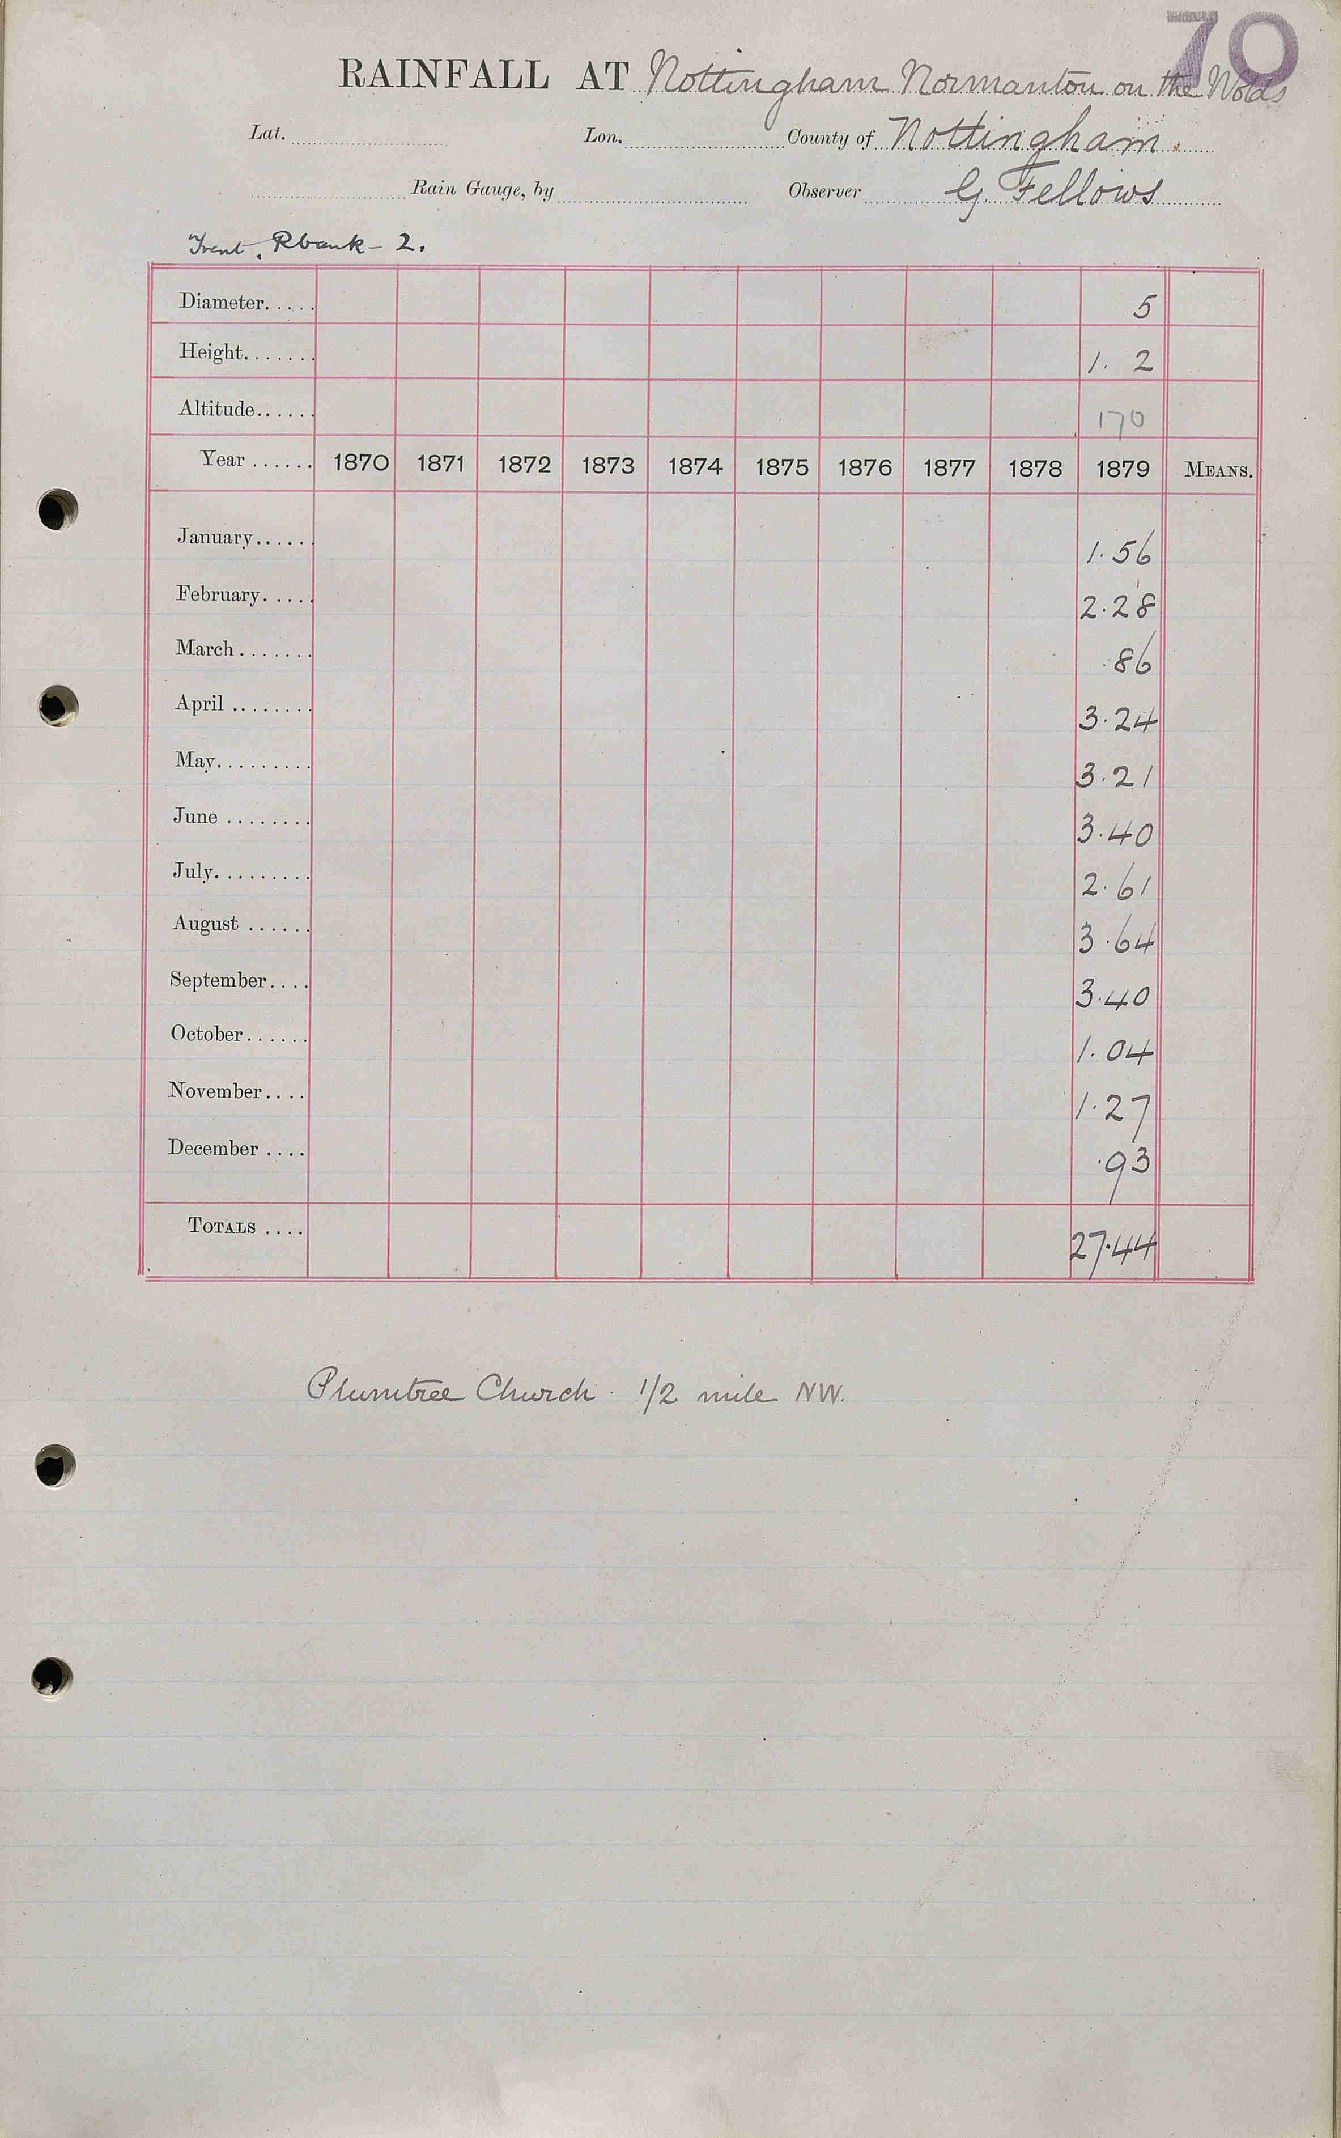 70
RAINFALL AT Nottingham Normanton on the Wolds
Lat. Lon. County of Nottingham.
Rain Gauge, by Observer G. Fellows
Trent. Rbank - 2.
Diameter..... 5
Height....... 1. 2
Altitude...... 170
Year ...... 1870 1871 1872 1873 1874 1875 1876 1877 1878 1879 MEANS.
January..... 1.56
February..... 2.28
March....... .86
April ........ 3.24
May......... 3.21
June ........ 3.40
July......... 2.61
August ...... 3.64
September.... 3.40
October...... 1.04
November.... 1.27
December .... .93
TOTALS .... 27.44
Plumtree Church. 1/2 mile NW.